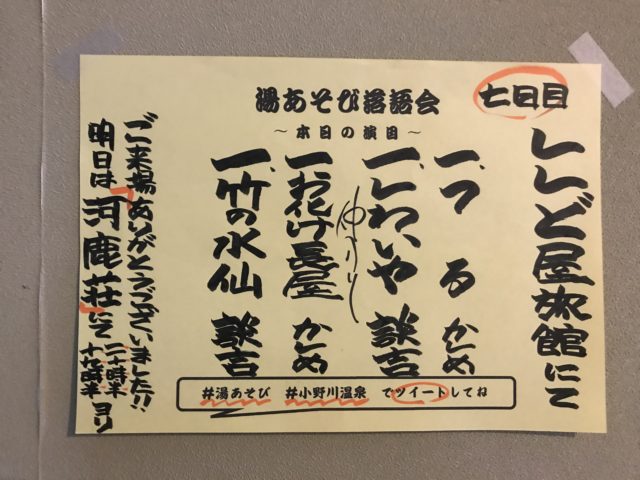 七日目
ししど屋旅館にて
湯あそび落語会
～本日の演目～
一、つる かしめ
一、しわいや 談吉
仲入り
一、お化け長屋 かしめ
一、竹の水仙 談吉
ご来場ありがとうございました!!
明日は「河鹿荘」にて 二十時半 十九時半 ヨリ
#湯あそび #小野川温泉 でツイートしてね